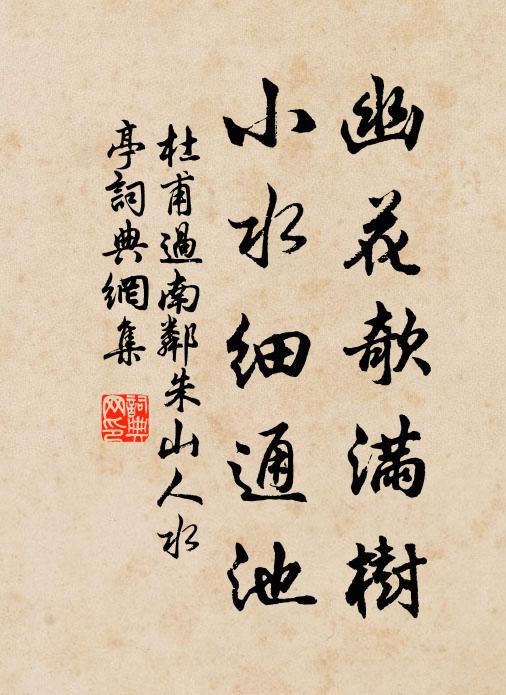 幽花欹滿樹
小水細通池
杜甫過南鄰朱山人水
亭詞典網集
詞典網印